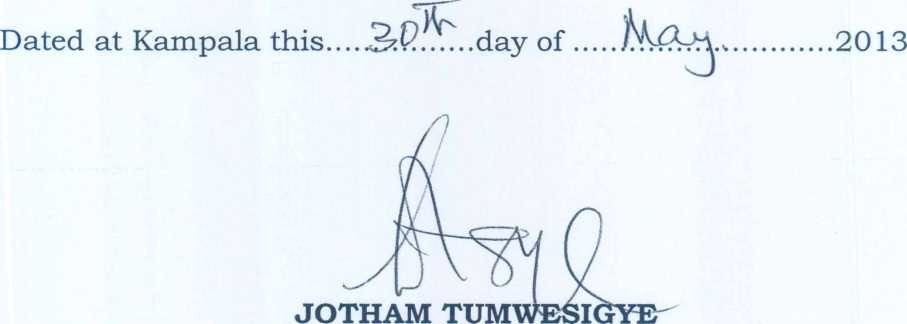 Dated at Kampala this.....30th.......day of .....May.............2013
JOTHAM TUMWESIGYE